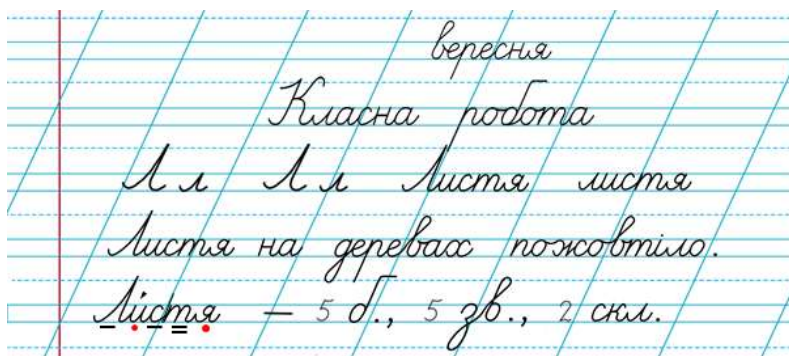 вересня
Класна робота
Л л Л л Листя листя
Листя на деревах пожовтіло.
Ли́стя – 5 б., 5 зв., 2 скл.